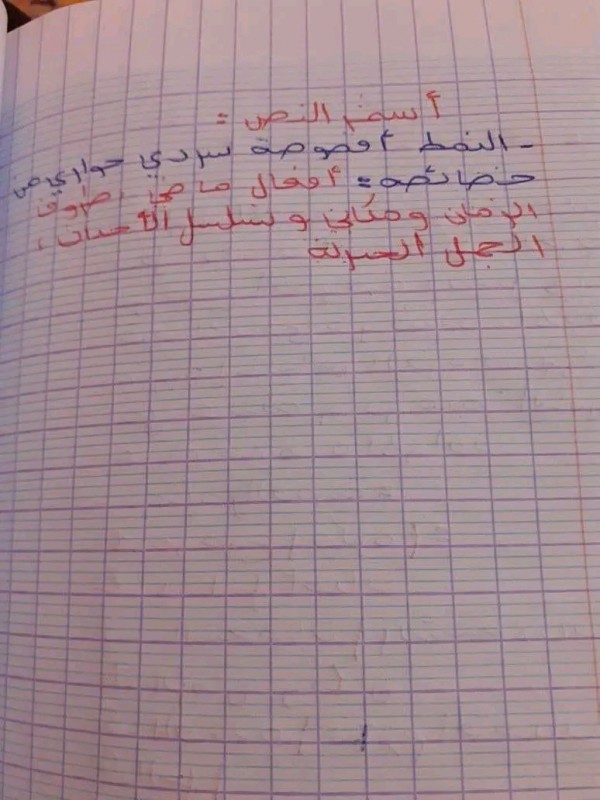 أستثمر النص :
- النمط أقصوصة سردي حواري
خصائصه : أفعال ماض ظروف
الزمان ومكاني وتسلسل الأحداث ،
الجمل الخبرية